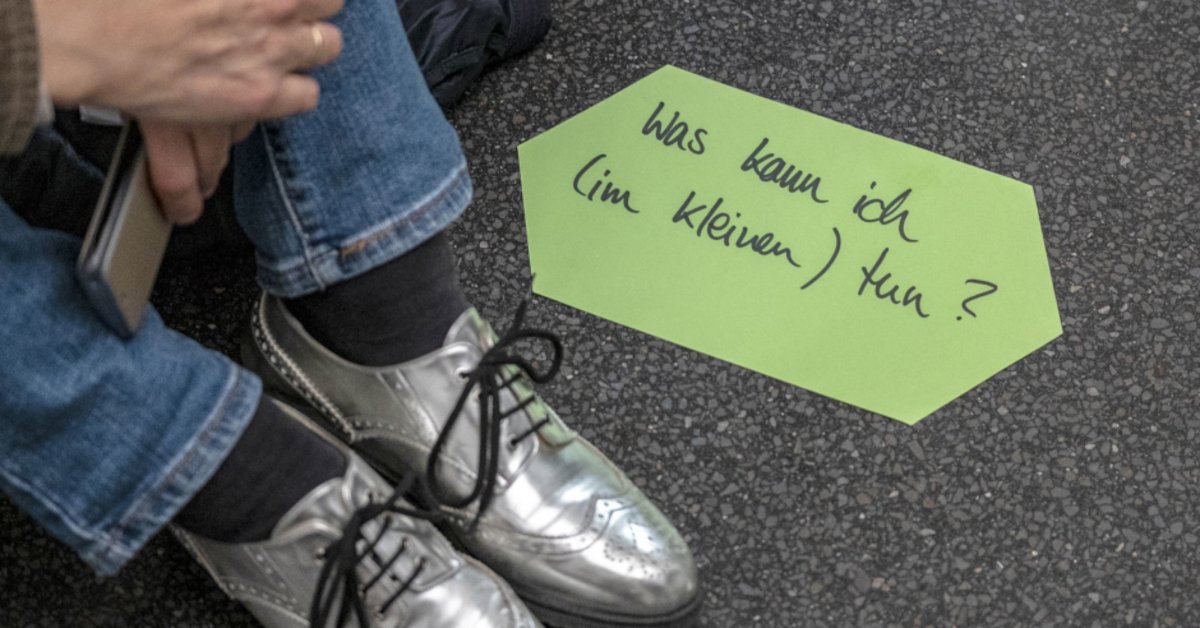 Was kann ich
(im kleinen) tun?